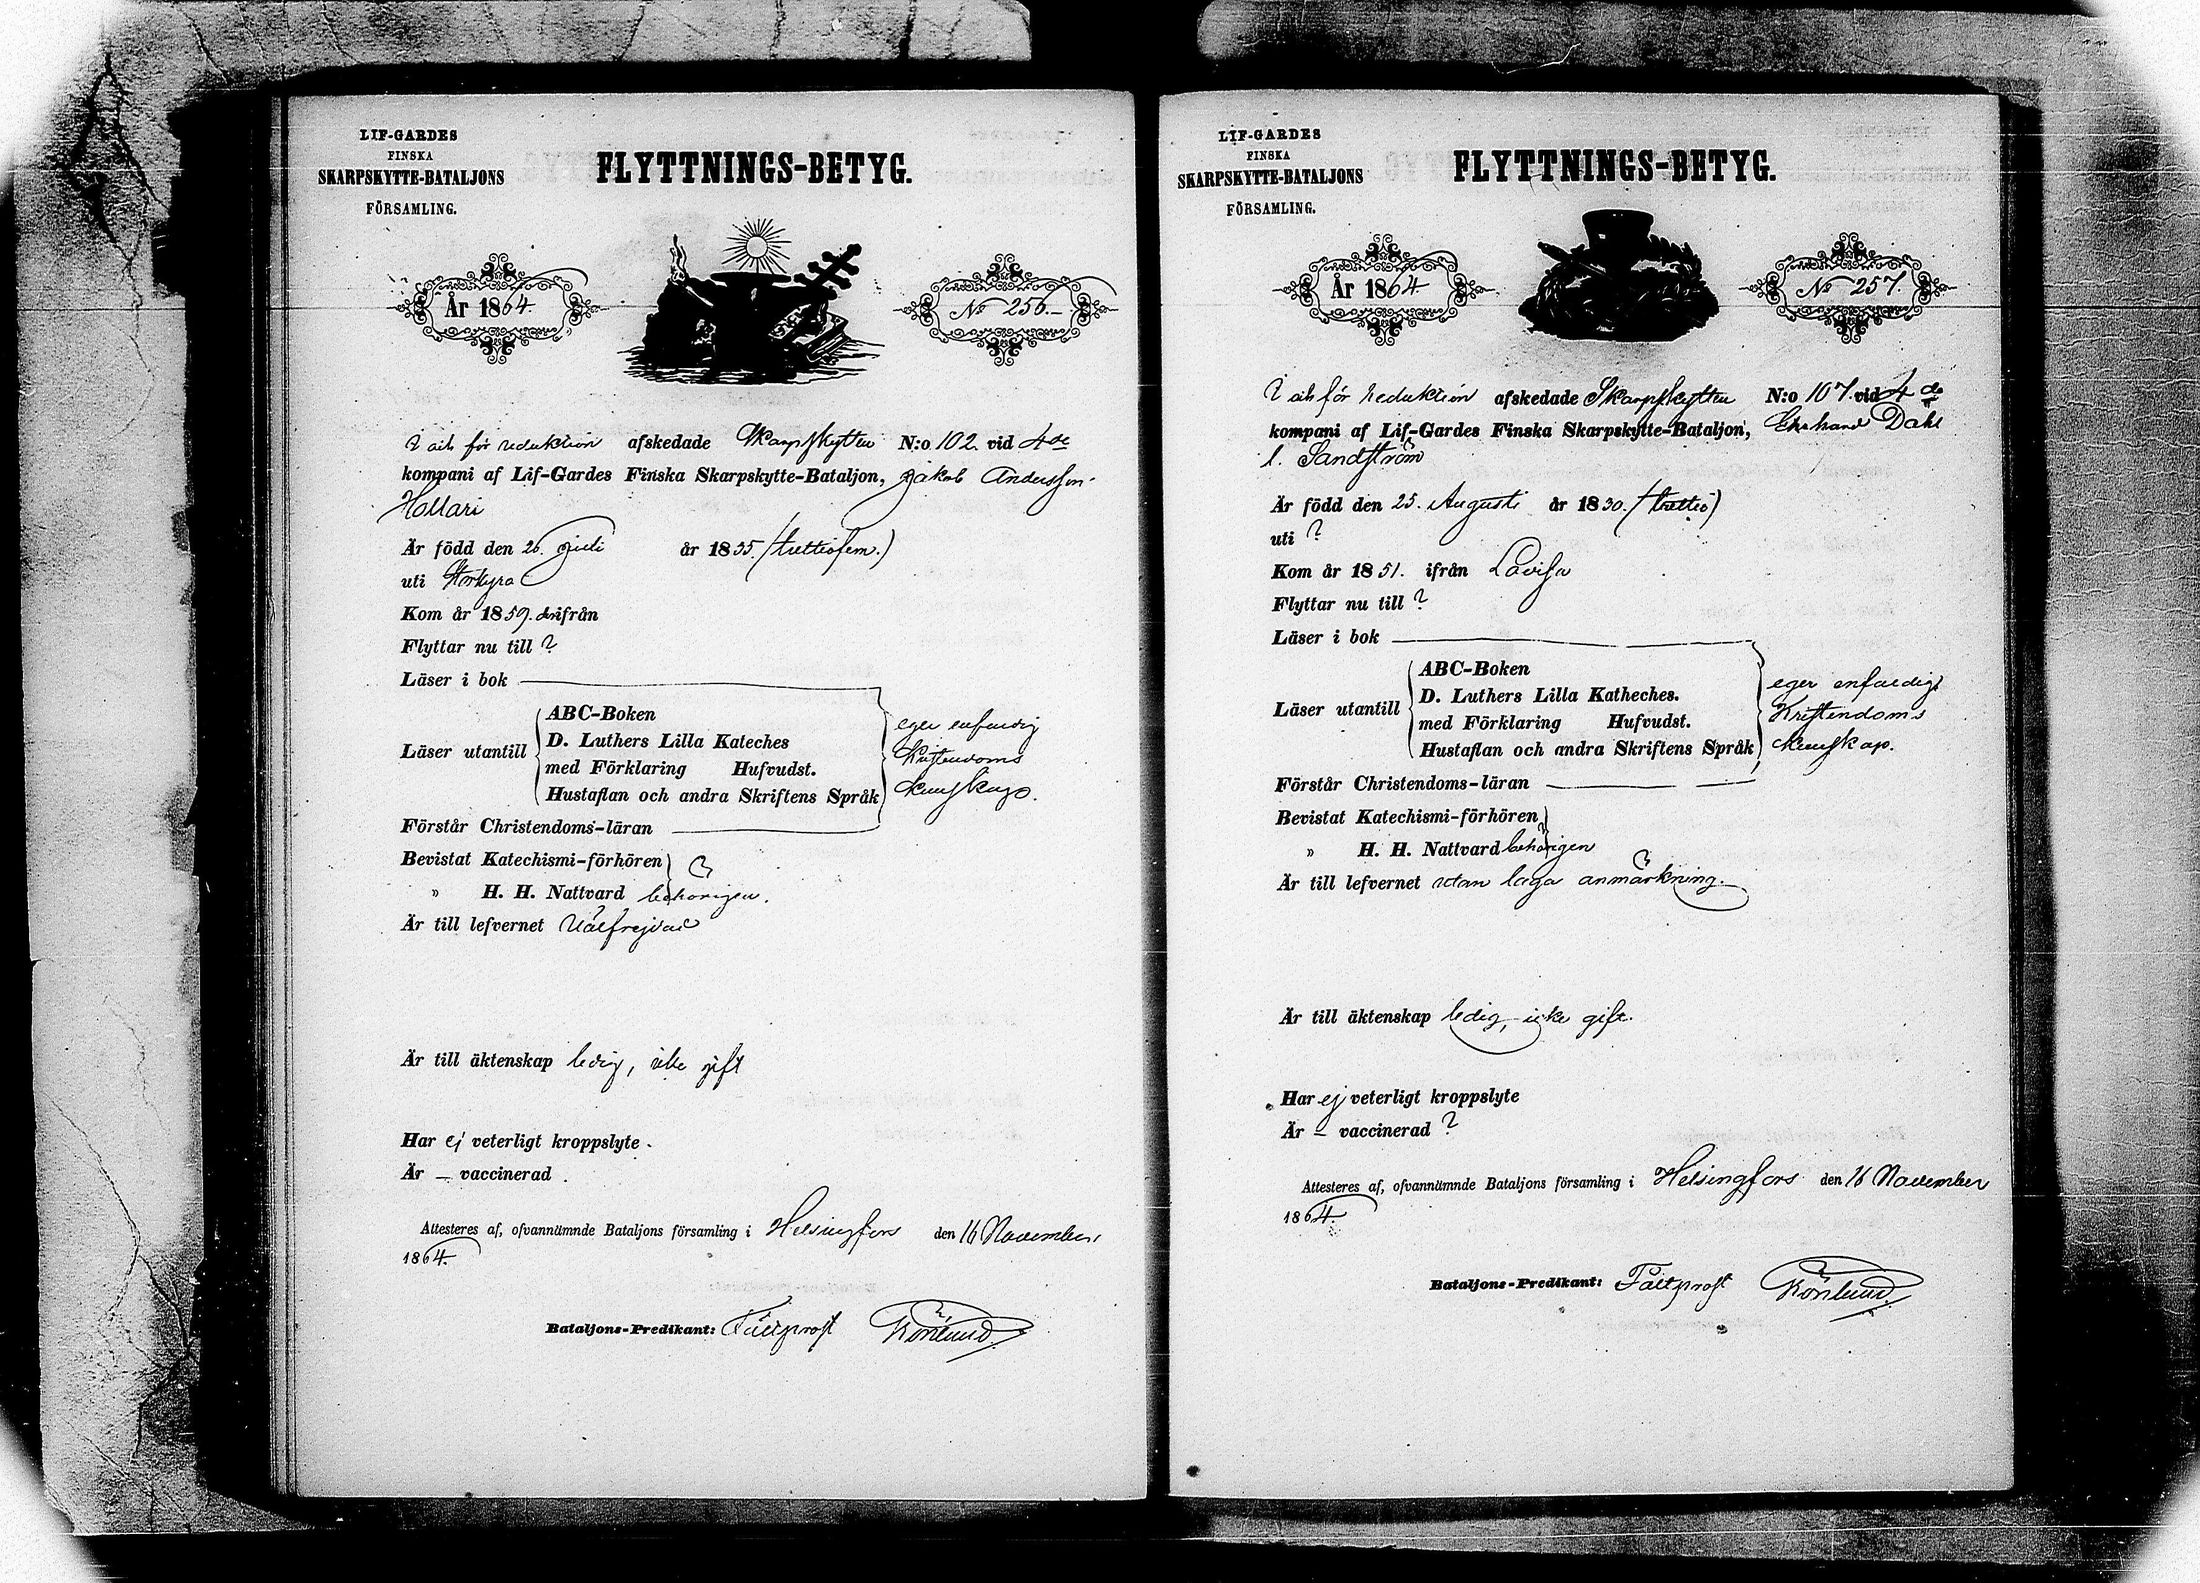 LIF-GARDES
FINSKA
SKARPSKYTTE-BATALJONS
FÖRSAMLING.
FLYTTNINGS-BETYG.
År 1864.
No 256.
för reduktion afskedade Skarpskytten N:o 102. vid 4de
kompani af Lif-Gardes Finska Skarpskytte-Bataljon, Jakob Andersson
Hollari
Är född den 26. Juli år 1835. (trettiofem.)
uti Storkyro
Kom år 1859. ifrån
Flyttar nu till ?
Läser i bok
Läser utantill
ABC-Boken
D. Luthers Lilla Kateches
med Förklaring Hufvudst.
Hustaflan och andra Skriftens Språk
eger enfaldig
Kristendoms
kunskap.
Förstår Christendoms-läran
Bevistat Katechismi-förhören
" H. H. Nattvard behörigen.
Är till lefvernet Välfrejdad
Är till äktenskap ledig, icke gift
Har ej veterligt kroppslyte.
Är – vaccinerad.
Attesteres af, ofvannämnde Bataljons församling i Helsingfors den 16 November
1864.
Bataljons-Predikant: Fältprost Rönlund.
LIF-GARDES
FINSKA
SKARPSKYTTE-BATALJONS
FÖRSAMLING.
FLYTTNINGS-BETYG.
År 1864.
No 257.
för reduktion afskedade Skarpskytten N:o 107. vid 4de
kompani af Lif-Gardes Finska Skarpskytte-Bataljon, Dahl
l. Sandström
Är född den 25. Augusti år 1830. (trettio)
uti ?
Kom år 1851. ifrån Lovisa
Flyttar nu till ?
Läser i bok
Läser utantill
ABC-Boken
D. Luthers Lilla Katheches.
med Förklaring Hufvudst.
Hustaflan och andra Skriftens Språk
eger enfaldig
Kristendoms
kunskap.
Förstår Christendoms-läran
Bevistat Katechismi-förhören
" H. H. Nattvard behörigen
Är till lefvernet utan laga anmärkning.
Är till äktenskap ledig, icke gift.
Har ej veterligt kroppslyte
Är – vaccinerad ?
Attesteres af, ofvannämnde Bataljons församling i Helsingfors den 16 November
1864.
Bataljons-Predikant: Fältprost Rönlund.